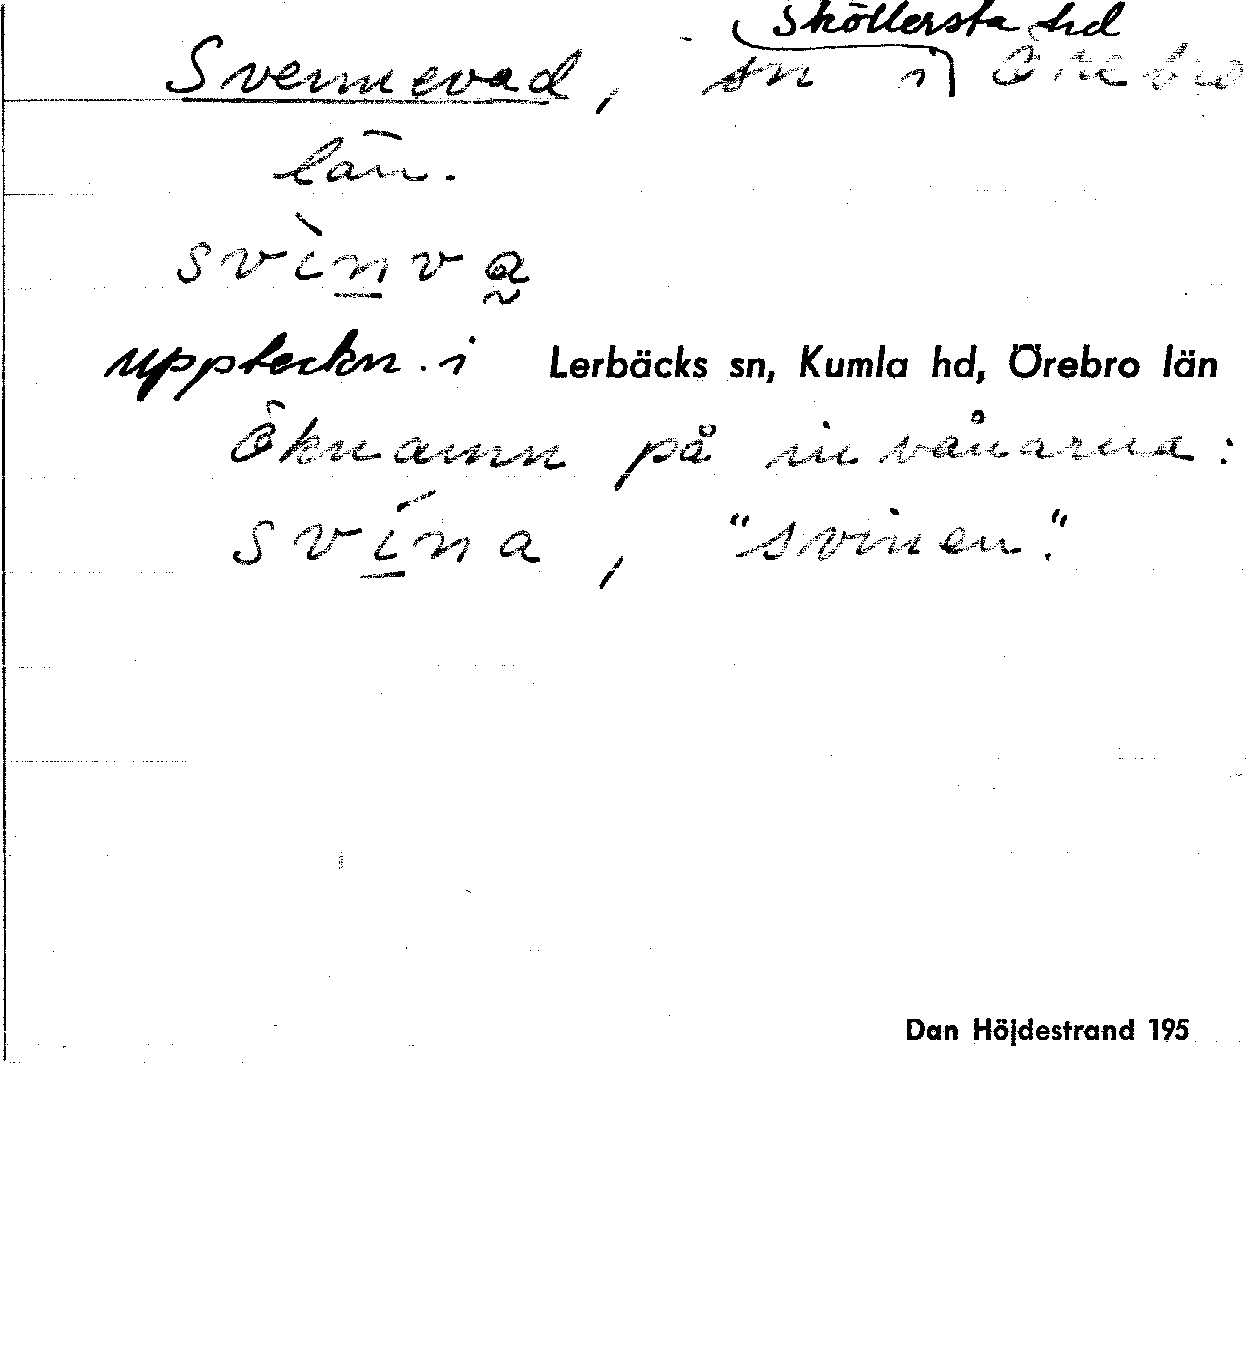 Sköllersta hd
Svennevad, sn i Örebro
län.
svìnva̰
uppteckn. i Lerbäcks sn, Kumla hd, Örebro län
Öknamn på invånarna:
svína, "svinen".
Dan Höjdestrand 195